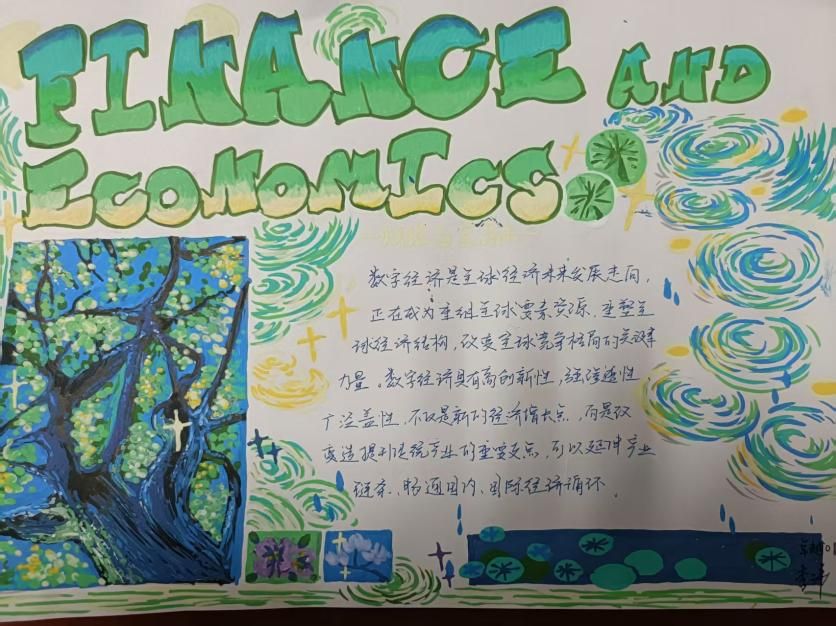 FINANCE AND
ECONOMICS
数字经济是全球经济未来发展走向,
正在成为重组全球要素资源、重塑全
球经济结构,改变全球竞争格局的关键
力量。数字经济具有高创新性,强渗透性,
广泛盖性,不仅是新的经济增长点,而是改
造提升传统产业的重要支点,可以延伸产业
链条,畅通国内、国际经济循环。